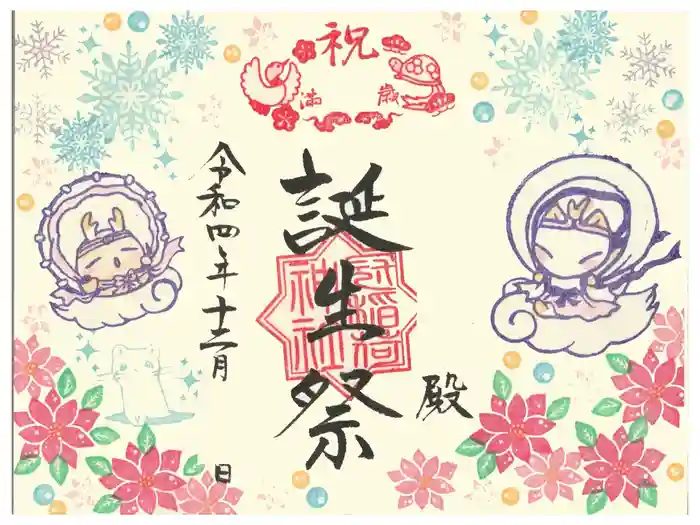 祝
満 歳
誕生祭
冠稲荷神社
殿
令和四年十二月
日